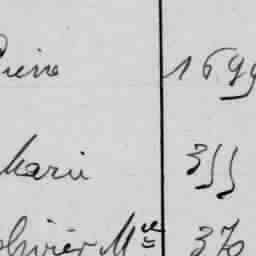 Pierre 1699
Marie 355
Olivier Mle 370